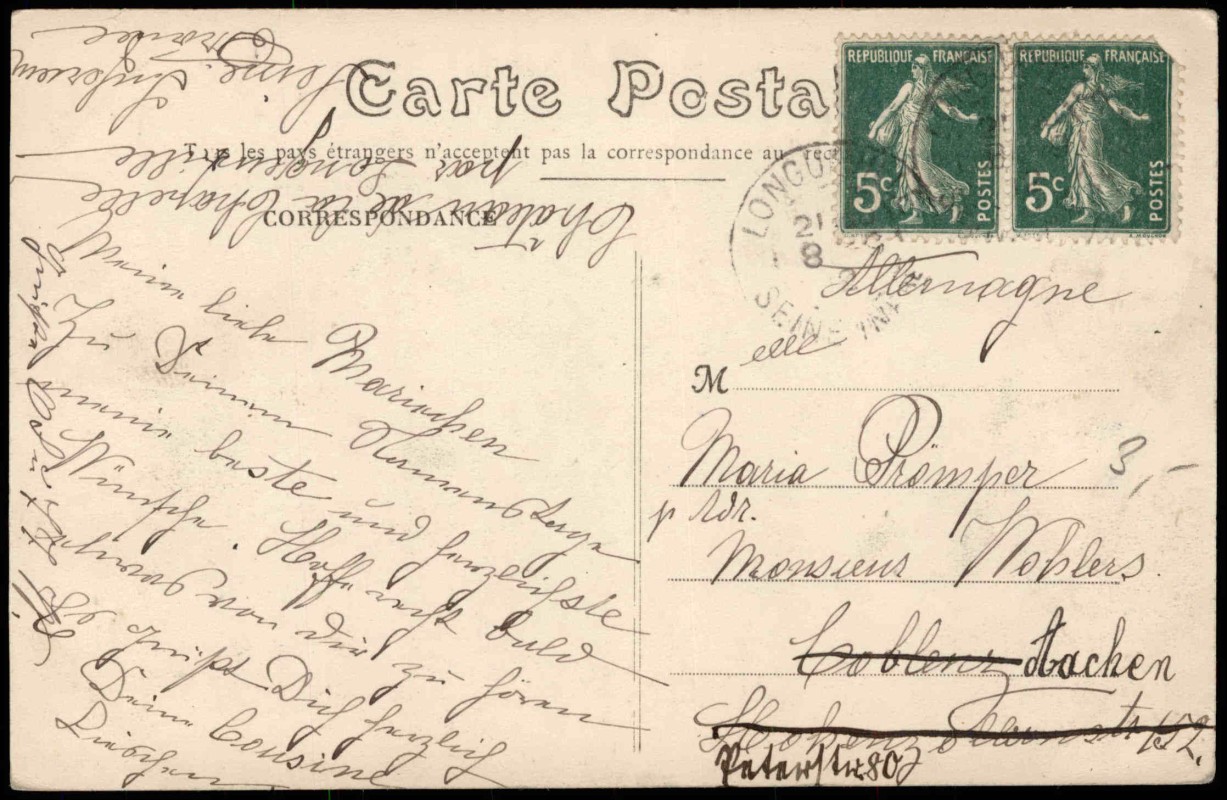 Carte Posta
Tous les pays étrangers n'acceptent pas la correspondance au rec
CORRESPONDANCE
Château de la Chapelle
par Longueville
Seine Inferieure
Meine liebe Mariechen
Zu Deinem Namenstage
meine beste und herzlichste
Wünsche. Hoffe recht bald
etwas von dir zu hören
Es grüßt Dich herzlich
Deine Cousine
REPUBLIQUE FRANÇAISE
5c
POSTES
REPUBLIQUE FRANÇAISE
5c
POSTES
LONGU
21
8
SEINE INF
Allemagne
Melle
Maria Prömper
p Adr.
Monsieur Wohlers
Coblenz Aachen
Hohenzollernstr 152.
Peterstr. 80
3,-